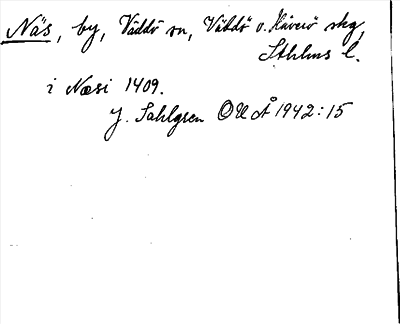 Näs, by, Väddö sn, Väddö o. Häverö skg,
Sthlms l.
i Næsi 1409.
J. Sahlgren OUÅ 1942:15